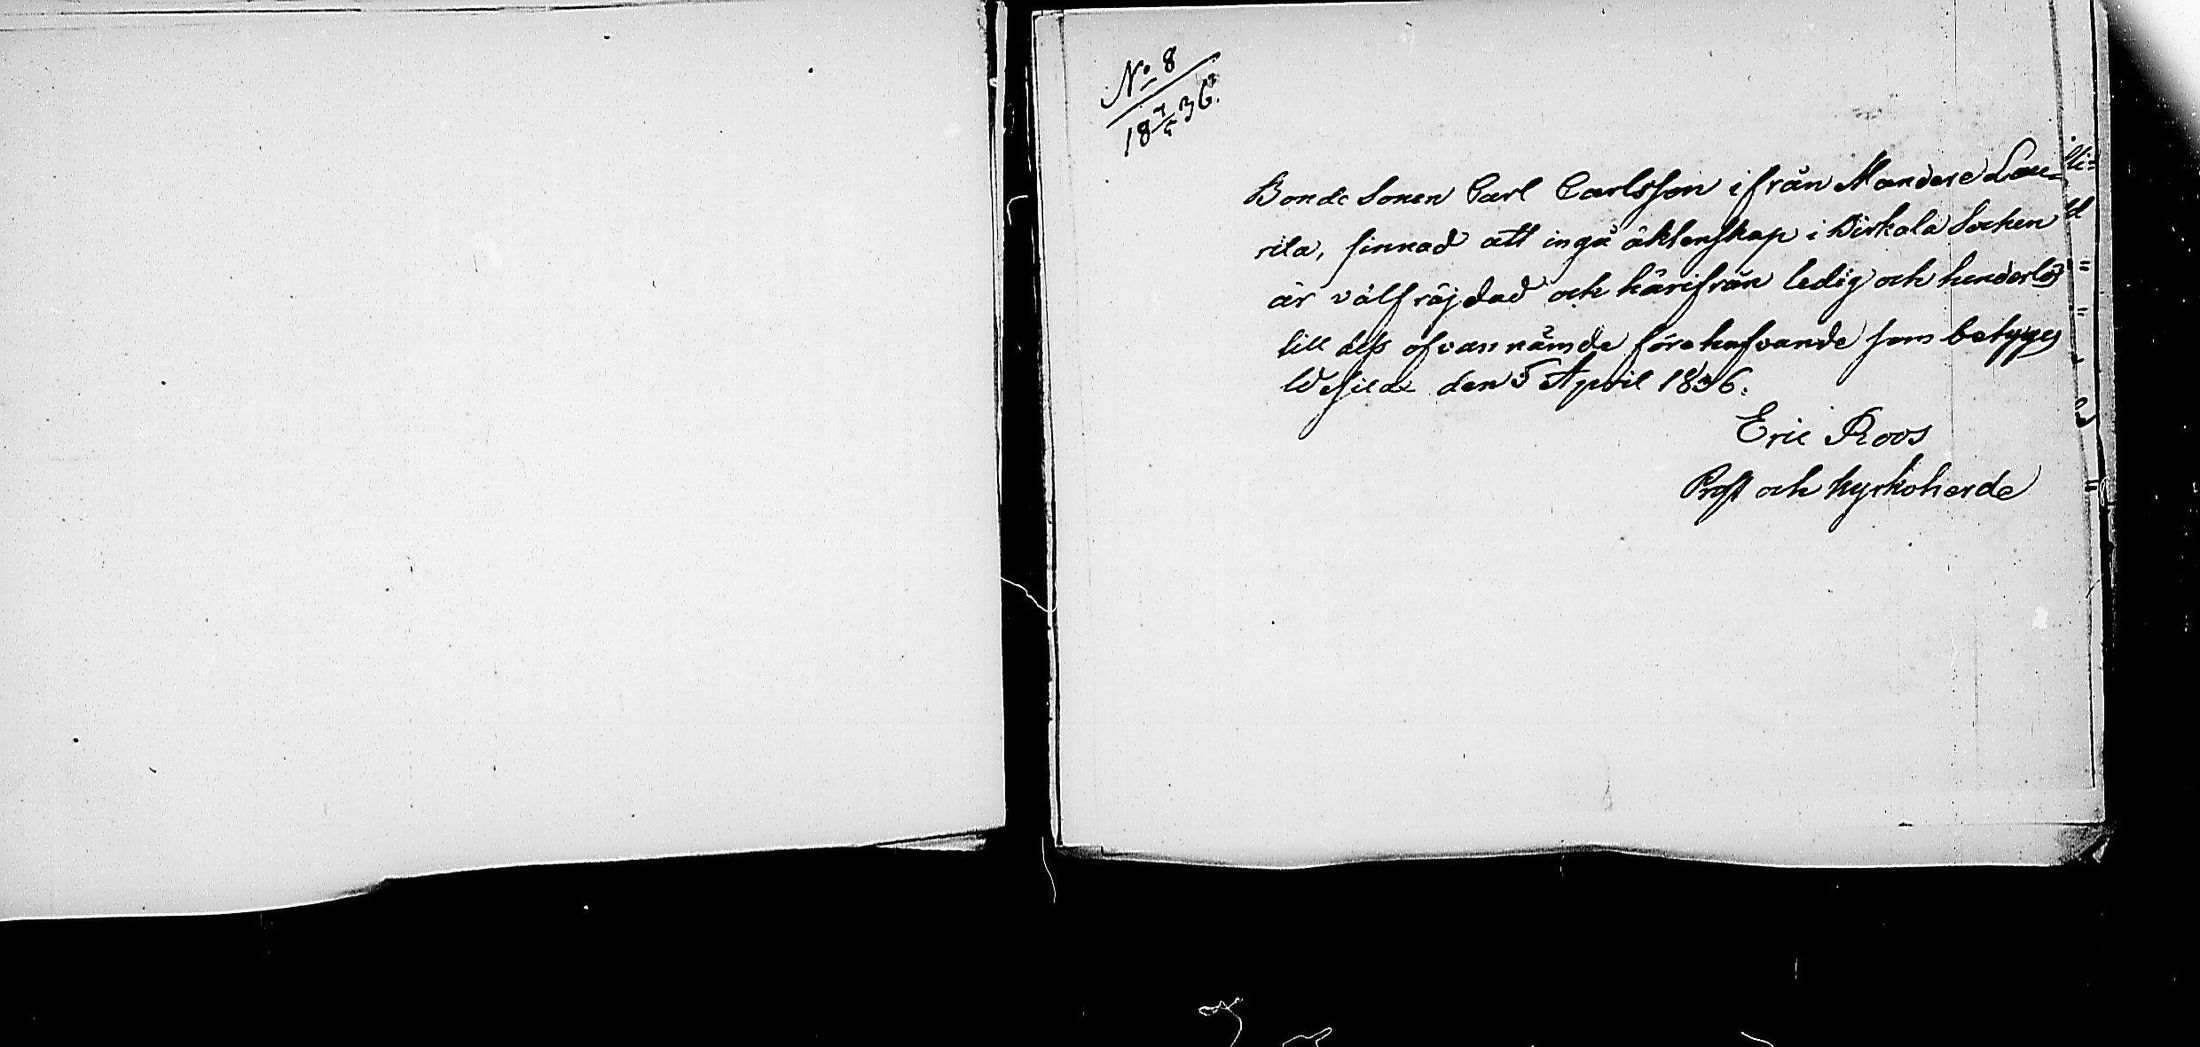 No 8
18 7/5 36.
Bonde Sonen Carl Carlsson ifrån Mandere Lau=
rila, sinnad att ingå äktenskap i Birkala Socken
är välfräjdad och härifrån ledig och hinderlös
till dess ofvannämde förehafvande som betygas
Wesila den 5 April 1836.
Eric Roos
Prost och Kyrkoherde